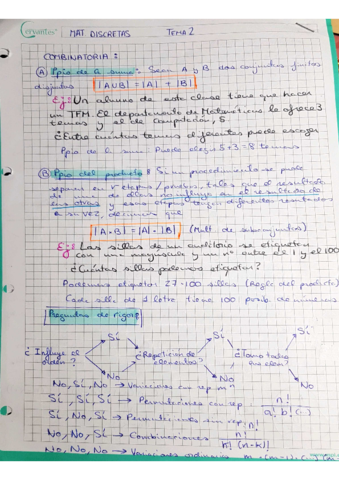 MAT DISCRETAS TEMA 2
COMBINATORIA:
(A) Ppio de la suma: Sean A y B dos conjuntos finitos
disjuntos |A∪B| = |A| + |B|
Ej: Un alumno de esta clase tiene que hacer
un TFM. El departamento de Matemáticas le ofrece 3
temas y el de Computación, 5
¿Entre cuántos temas diferentes puede escoger
Ppio de la suma. Puede elegir 5+3=8 temas
(B) Ppio del producto: Si un procedimiento se puede
separar en r etapas/pruebas, tales que el resultado
de una de ellas no influye en el resultado de
las otras y esas etapas tienen diferentes resultados
a su vez, decimos que
|A·B| = |A|·|B| (Mult. de subconjuntos)
Ej: Las sillas de un auditorio se etiquetan
con una mayúscula y un nº entre el 1 y el 100
¿Cuántas sillas podemos etiquetar?
Podemos etiquetar 27·100 sillas (Regla del producto)
Cada silla de 1 letra tiene 100 posib de números
Preguntas de rigor:
Sí Sí Sí
¿Influye el orden? ¿Repetición de elementos? ¿Tomo todos
No No No
No, Sí, No → Variaciones con rep
Sí, Sí, Sí → Permutaciones con rep n! / a! b! (...)
Sí, No, Sí → Permutaciones sin rep: n!
No, No, No → Combinaciones n! / k! (n-k)!
No, No, No → Variaciones ordinarias